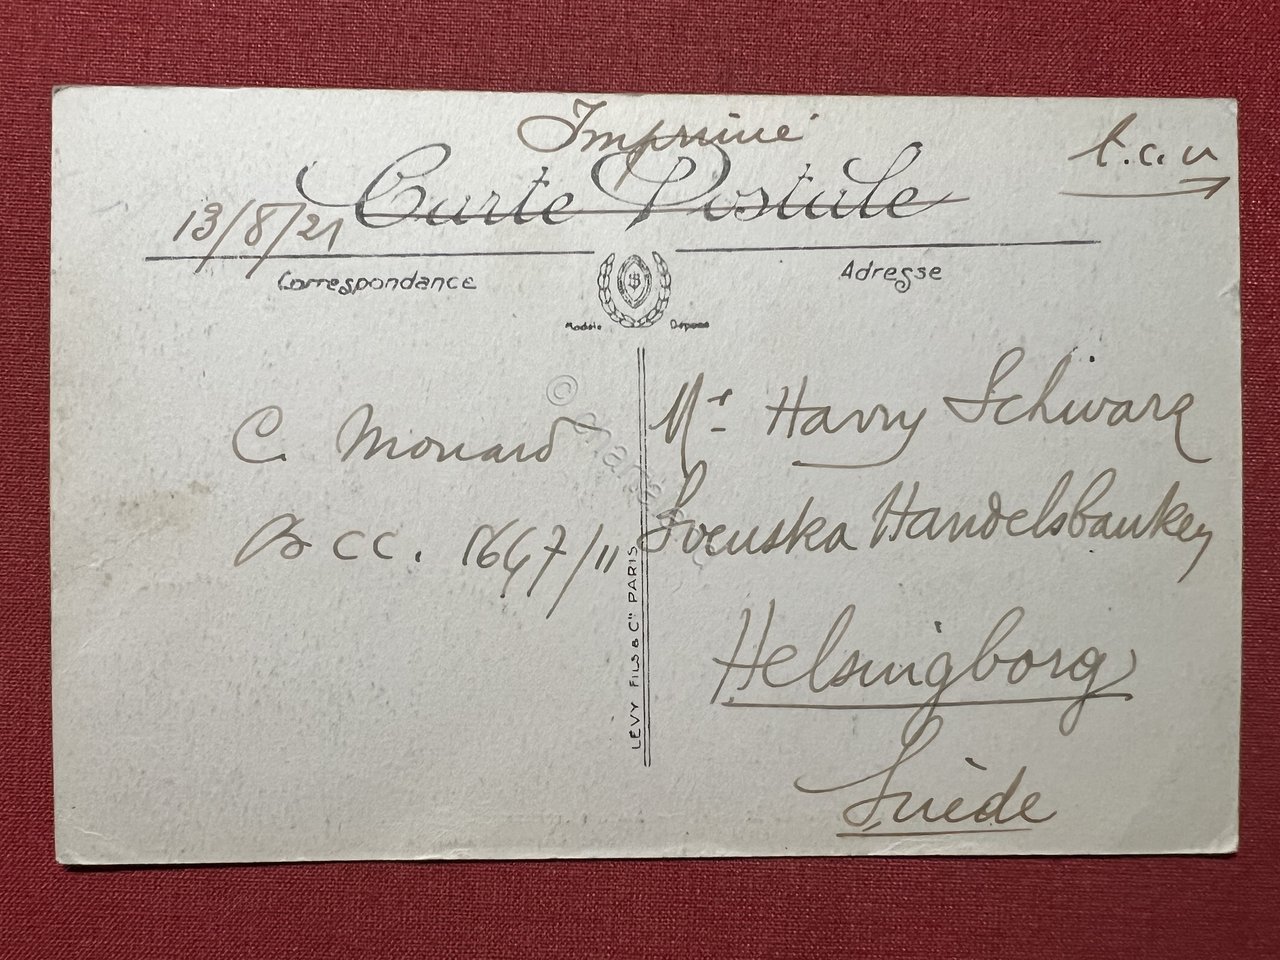 Imprimé
t.c.v
Carte Postale
13/8/21
Correspondance
Adresse
Modèle Déposé
C. Monard
BCC. 1647/11
Mr Harry Schwarz
Svenska Handelsbanken
Helsingborg
Suède
LÉVY FILS & Cie PARIS